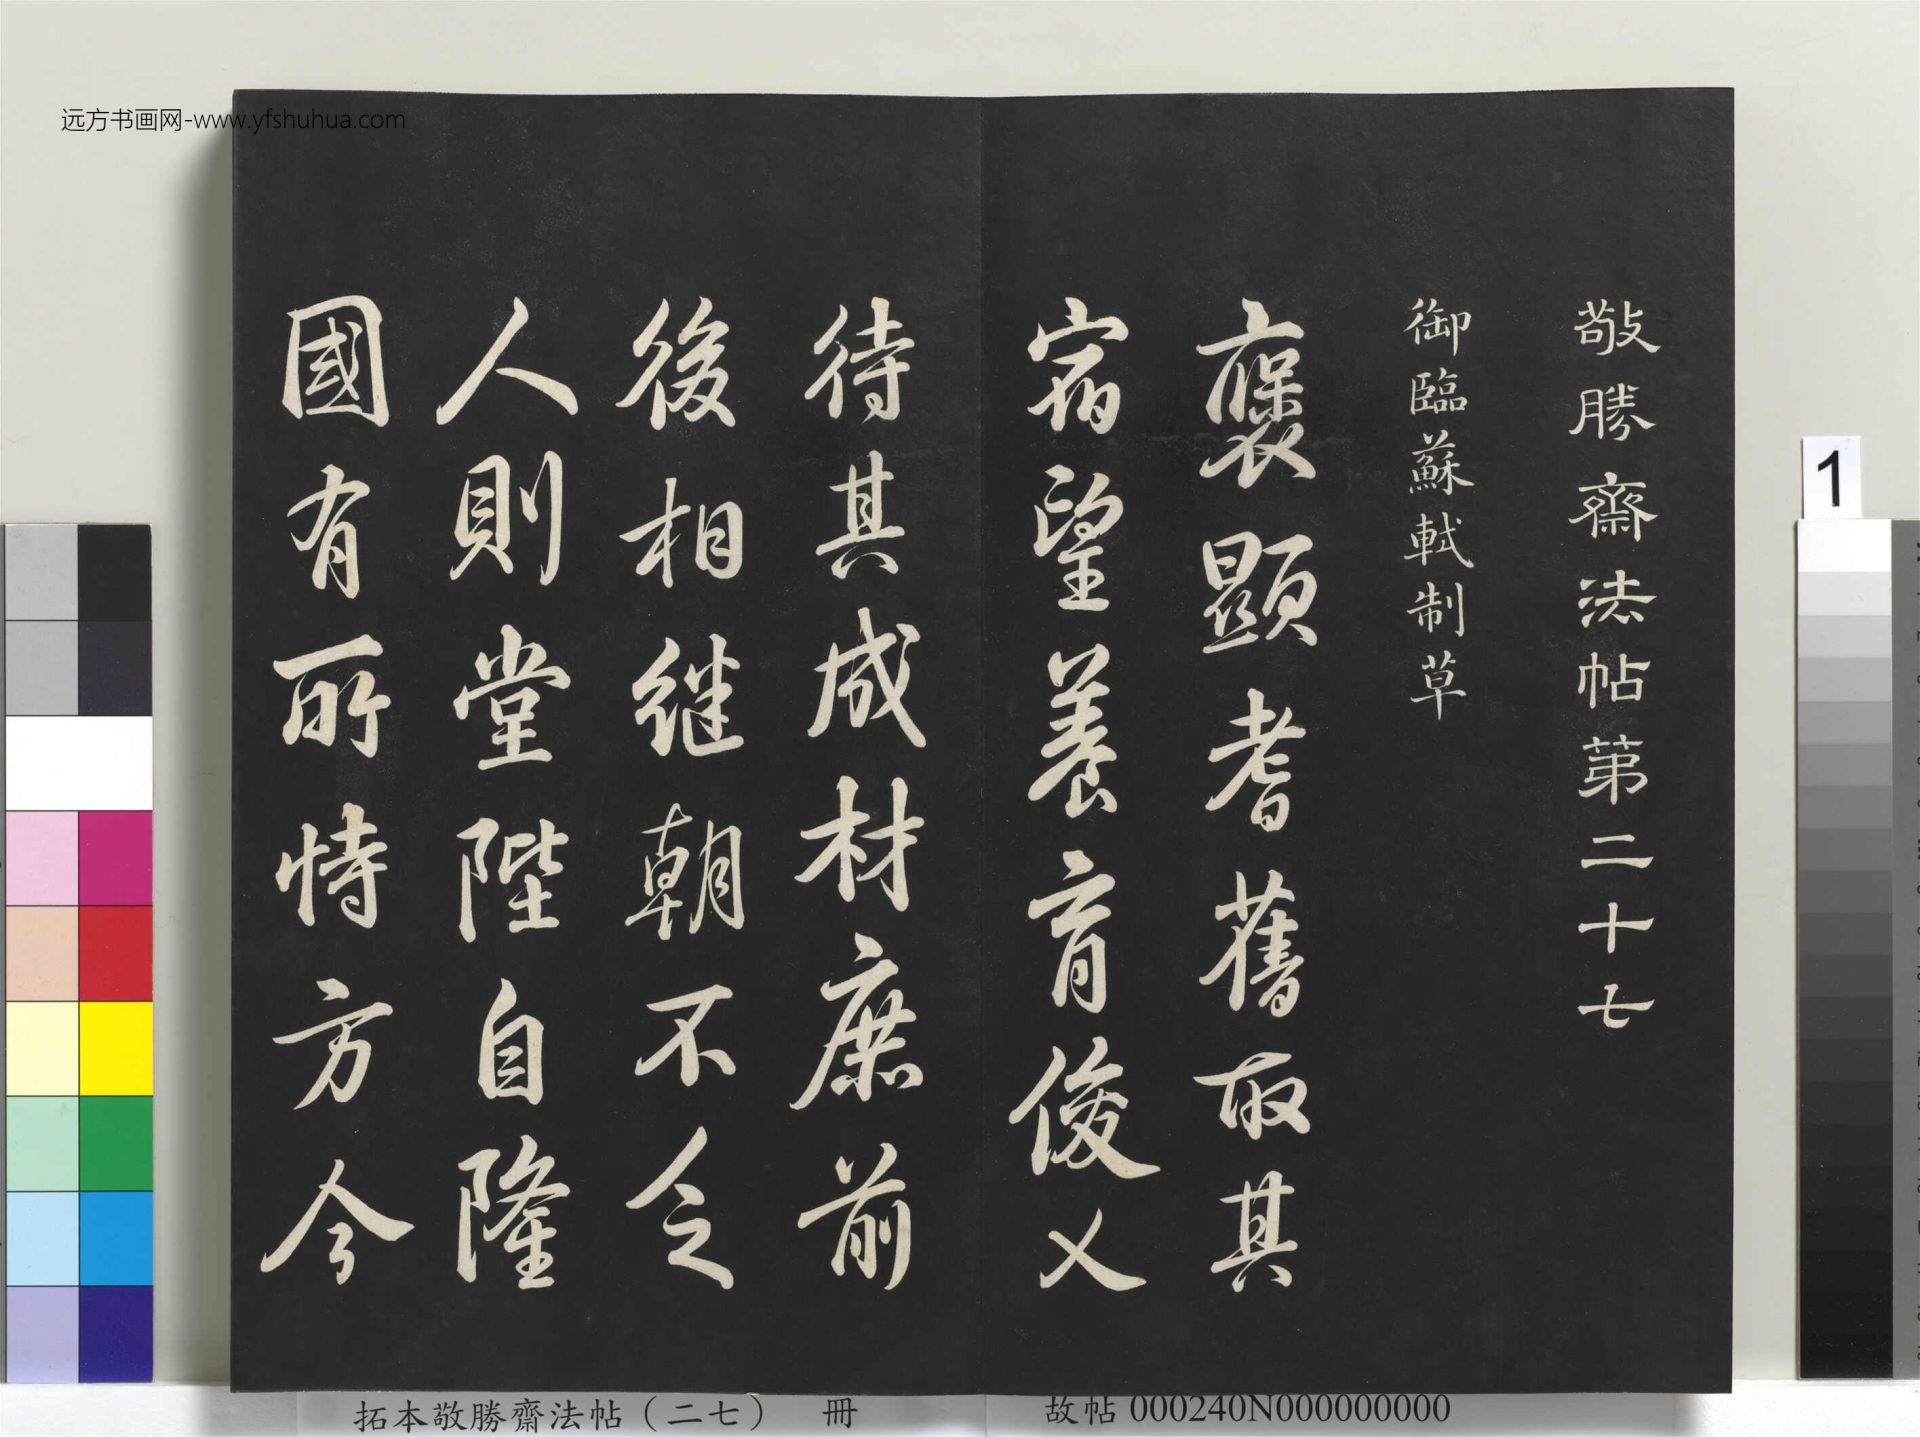 远方书画网-www.yfshuhua.com
敬勝齋法帖第二十七
御臨蘇軾制草
褒顯耆舊取其
宿望養育俊乂
待其成材庶前
後相继朝不乏
人則堂陛自隆
國有所恃方今
1
拓本敬勝齋法帖（二七） 冊
故帖 000240N000000000